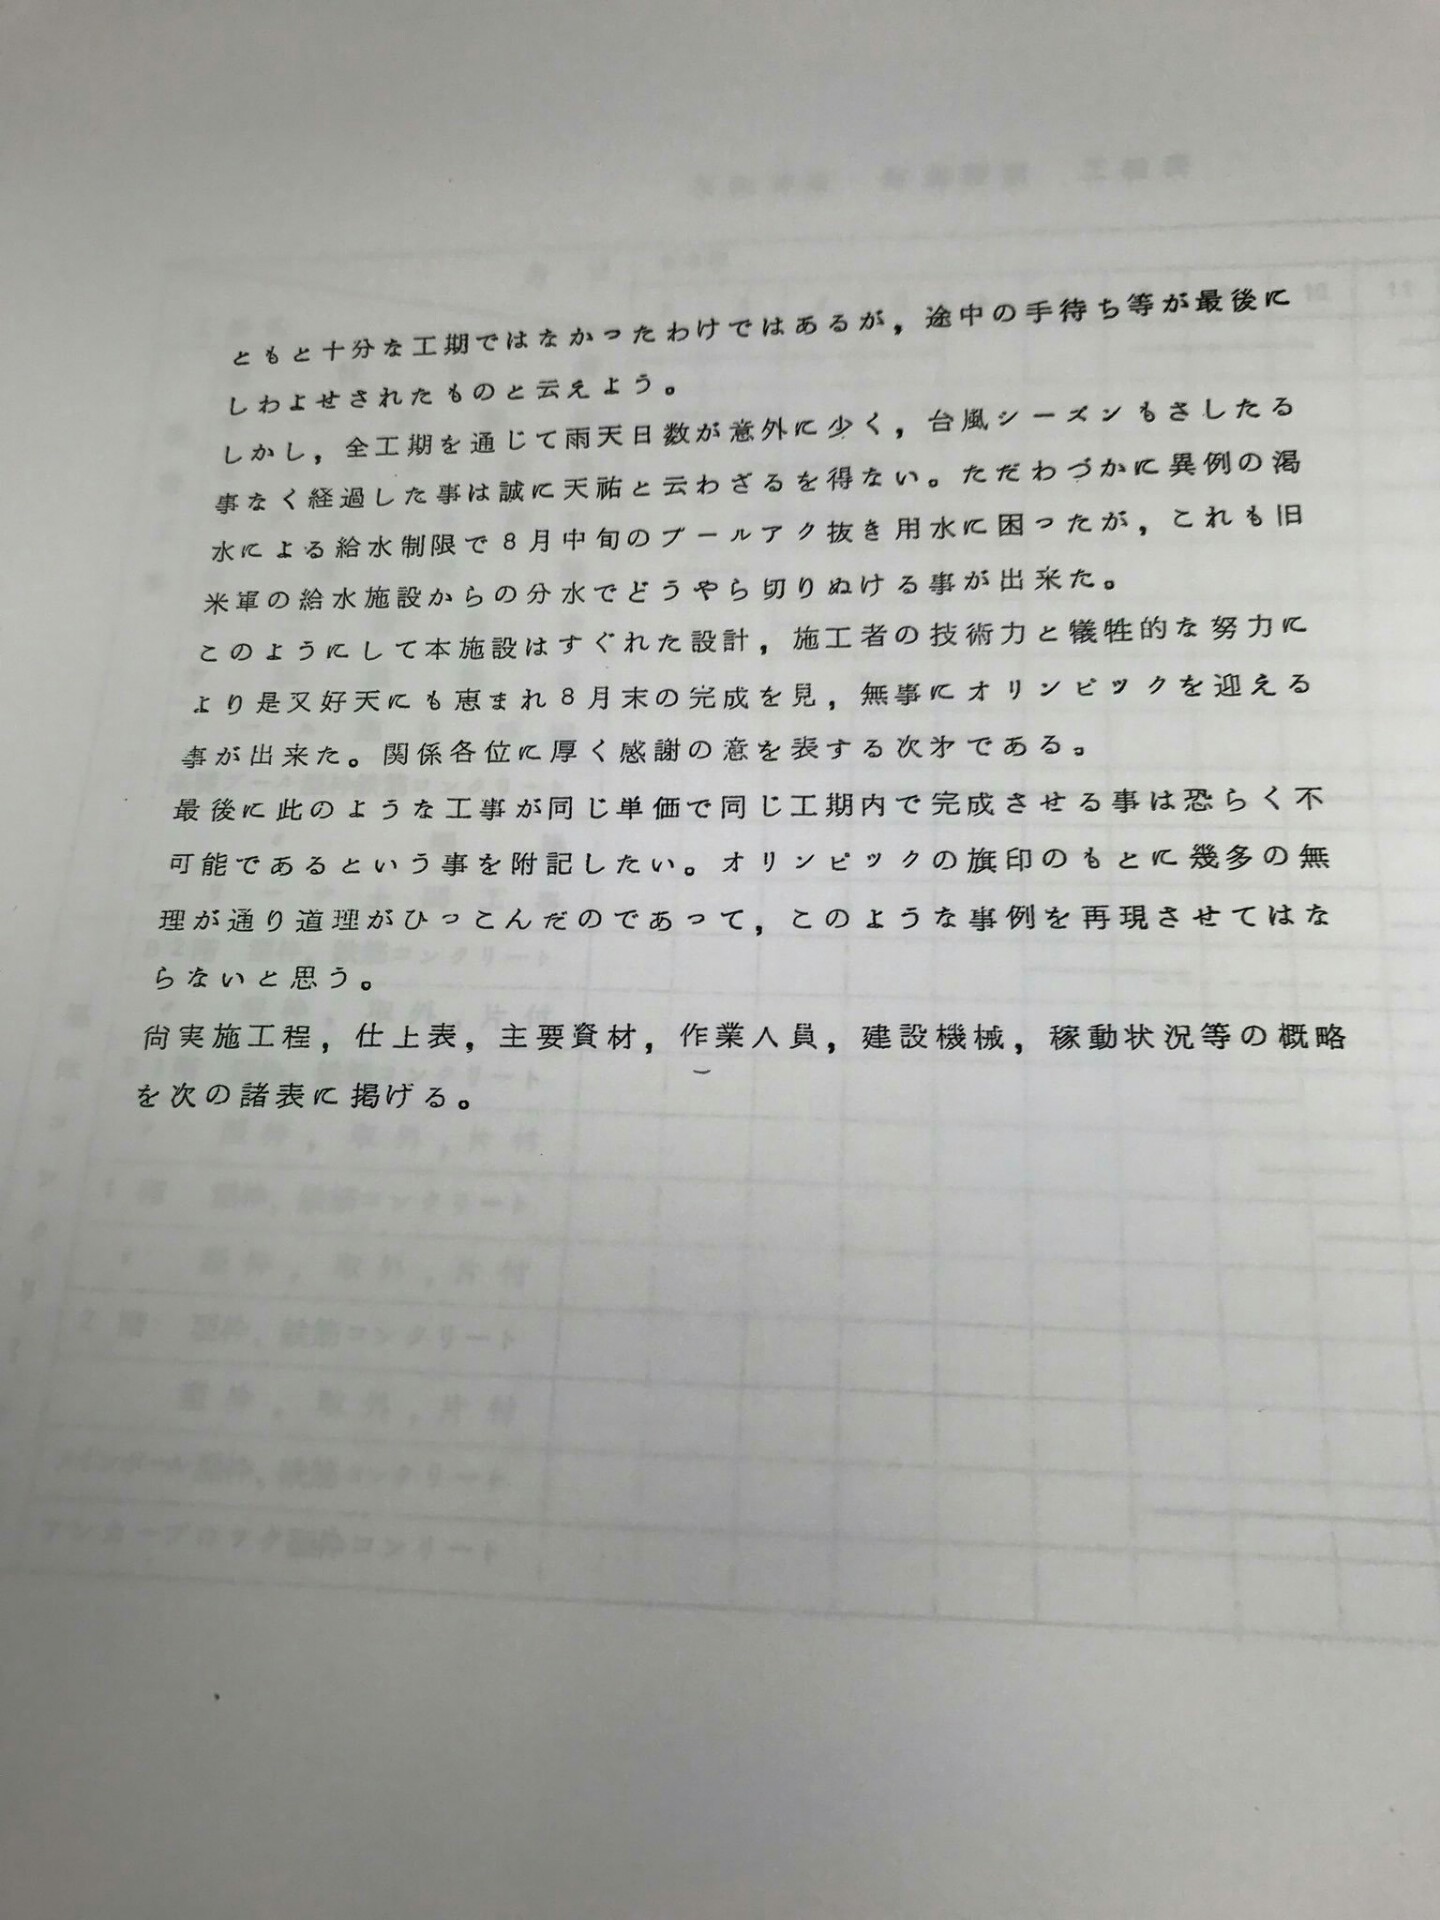 ともと十分な工期ではなかったわけではあるが，途中の手待ち等が最後に
しわよせされたものと云えよう。
しかし，全工期を通じて雨天日数が意外に少く，台風シーズンもさしたる
事なく経過した事は誠に天祐と云わざるを得ない。ただわづかに異例の渇
水による給水制限で8月中旬のプールアク抜き用水に困ったが，これも旧
米軍の給水施設からの分水でどうやら切りぬける事が出来た。
このようにして本施設はすぐれた設計，施工者の技術力と犠牲的な努力に
より是又好天にも恵まれ8月末の完成を見，無事にオリンピックを迎える
事が出来た。関係各位に厚く感謝の意を表する次㐧である。
最後に此のような工事が同じ単価で同じ工期内で完成させる事は恐らく不
可能であるという事を附記したい。オリンピックの旗印のもとに幾多の無
理が通り道理がひっこんだのであって，このような事例を再現させてはな
らないと思う。
尚実施工程，仕上表，主要資材，作業人員，建設機械，稼動状況等の概略
を次の諸表に掲げる。